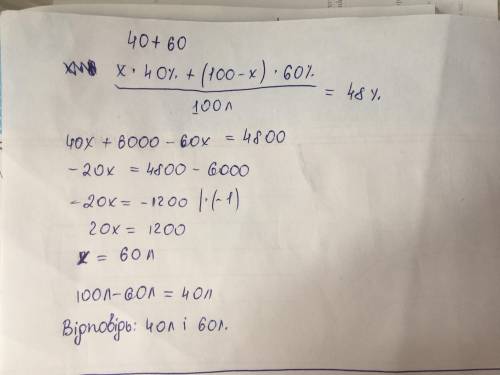 40+60
x · 40% + (100-x) · 60%
100л
= 48%
40x + 6000 - 60x = 4800
-20x = 4800 - 6000
-20x = -1200 |·(-1)
20x = 1200
x = 60л
100л-60л = 40л
Відповідь: 40л і 60л.